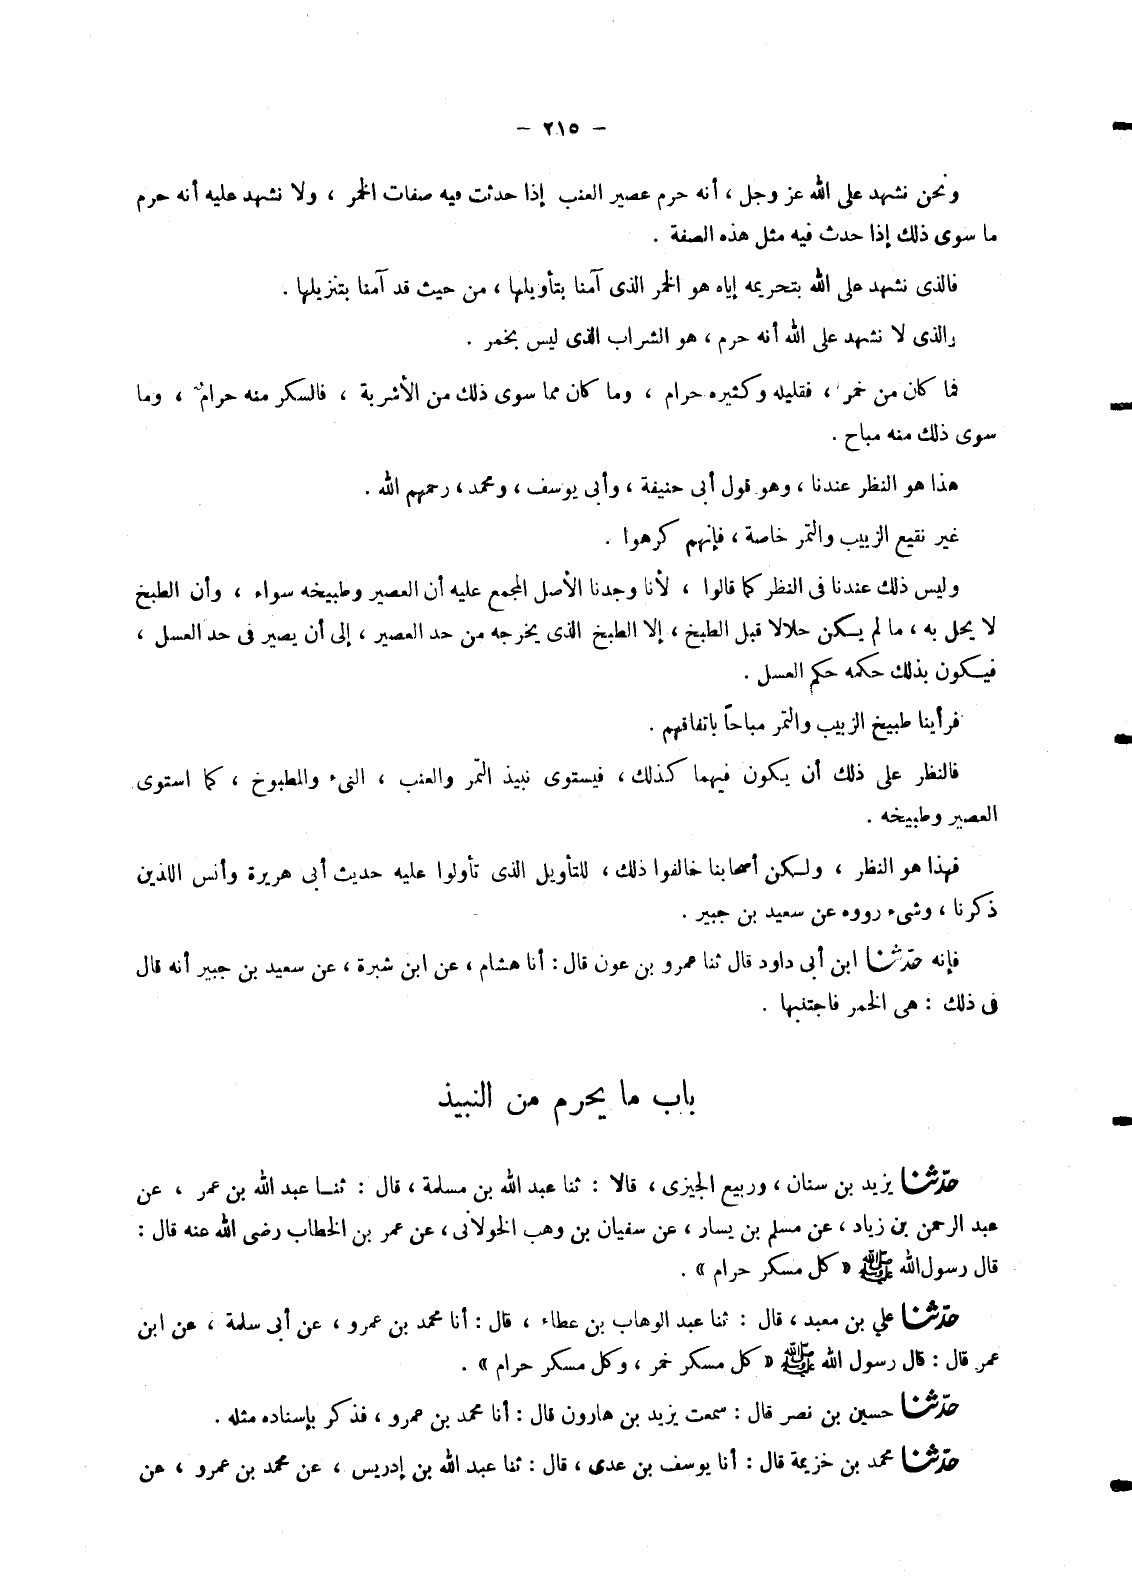 - ٢١٥ -
ونحن نشهد على الله عز وجل ، أنه حرم عصير العنب إذا حدثت فيه صفات الخمر ، ولا نشهد عليه أنه حرم
ما سوى ذلك إذا حدث فيه مثل هذه الصفة .
فالذى نشهد على الله بتحريمه إياه هو الخمر الذى آمنا بتأويلها ، من حيث قد آمنا بتنزيلها .
والذى لا نشهد على الله أنه حرم ، هو الشراب الذى ليس بخمر .
فما كان من خمر ، فقليله وكثيره حرام ، وما كان مما سوى ذلك من الأشربة ، فالسكر منه حرام ، وما
سوى ذلك منه مباح .
هذا هو النظر عندنا ، وهو قول أبى حنيفة ، وأبى يوسف ، ومحمد ، رحمهم الله .
غير نقيع الزبيب والتمر خاصة ، فإنهم كرهوا .
وليس ذلك عندنا فى النظر كما قالوا ، لأنا وجدنا الأصل المجمع عليه أن العصير وطبيخه سواء ، وأن الطبخ
لا يحل به ، ما لم يكن حلالا قبل الطبخ ، إلا الطبخ الذى يخرجه من حد العصير ، إلى أن يصير فى حد العسل ،
فيكون بذلك حكمه حكم العسل .
فرأينا طبيخ الزبيب والتمر مباحاً باتفاقهم .
فالنظر على ذلك أن يكون فيهما كذلك ، فيستوى نبيذ التمر والعنب ، النىء والمطبوخ ، كما استوى
العصير وطبيخه .
فهذا هو النظر ، ولكن أصحابنا خالفوا ذلك ، للتأويل الذى تأولوا عليه حديث أبى هريرة وأنس اللذين
ذكرنا ، وشىء رووه عن سعيد بن جبير .
فإنه حدّثنا ابن أبى داود قال ثنا عمرو بن عون قال : أنا هشام ، عن ابن شبرة ، عن سعيد بن جبير أنه قال
فى ذلك : هى الخمر فاجتنبها .
باب ما يحرم من النبيذ
حدّثنا يزيد بن سنان ، وربيع الجيزى ، قالا : ثنا عبد الله بن مسلمة ، قال : ثنا عبد الله بن عمر ، عن
عبد الرحمن بن زياد ، عن مسلم بن يسار ، عن سفيان بن وهب الخولانى ، عن عمر بن الخطاب رضى الله عنه قال :
قال رسول الله ﷺ « كل مسكر حرام » .
حدّثنا علي بن معبد ، قال : ثنا عبد الوهاب بن عطاء ، قال : أنا محمد بن عمرو ، عن أبى سلمة ، عن ابن
عمر قال : قال رسول الله ﷺ « كل مسكر خمر ، وكل مسكر حرام » .
حدّثنا حسين بن نصر قال : سمعت يزيد بن هارون قال : أنا محمد بن عمرو ، فذكر بإسناده مثله .
حدّثنا محمد بن خزيمة قال : أنا يوسف بن عدى ، قال : ثنا عبد الله بن إدريس ، عن محمد بن عمرو ، عن